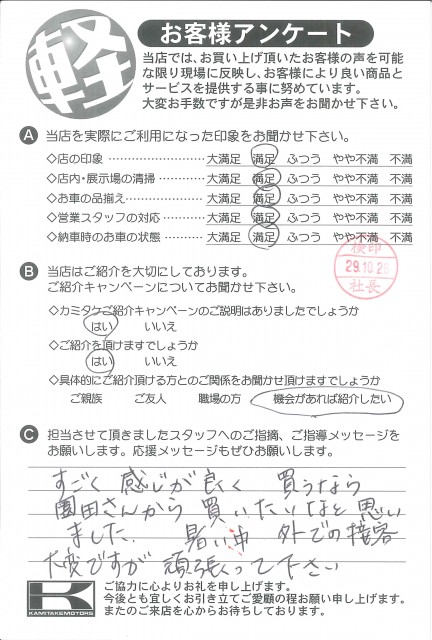 軽
お客様アンケート
当店では、お買い上げ頂いたお客様の声を可能
な限り現場に反映し、お客様により良い商品と
サービスを提供する事に努めています。
大変お手数ですが是非お声をお聞かせ下さい。
A 当店を実際にご利用になった印象をお聞かせ下さい。
◇店の印象 ………………… 大満足 満足 ふつう やや不満 不満
◇店内・展示場の清掃 ………… 大満足 満足 ふつう やや不満 不満
◇お車の品揃え ……………… 大満足 満足 ふつう やや不満 不満
◇営業スタッフの対応 ………… 大満足 満足 ふつう やや不満 不満
◇納車時のお車の状態 ………… 大満足 満足 ふつう やや不満 不満
検印
29.10.26
社長
B 当店はご紹介を大切にしております。
ご紹介キャンペーンについてお聞かせ下さい。
◇カミタケご紹介キャンペーンのご説明はありましたでしょうか
はい いいえ
◇ご紹介を頂けますでしょうか
はい いいえ
◇具体的にご紹介頂ける方とのご関係をお聞かせ頂けますでしょうか
ご親族 ご友人 職場の方 機会があれば紹介したい
C 担当させて頂きましたスタッフへのご指摘、ご指導メッセージを
お願いします。応援メッセージもぜひお願いします。
すごく 感じが良く 買うなら
園田さんから 買いたいなと 思い
ました。 暑い中 外での接客
大変ですが 頑張って下さい
K
KAMITAKEMOTORS
ご協力に心よりお礼を申し上げます。
今後とも宜しくお引き立てご愛顧の程お願い申し上げます。
またのご来店を心からお待ちしております。